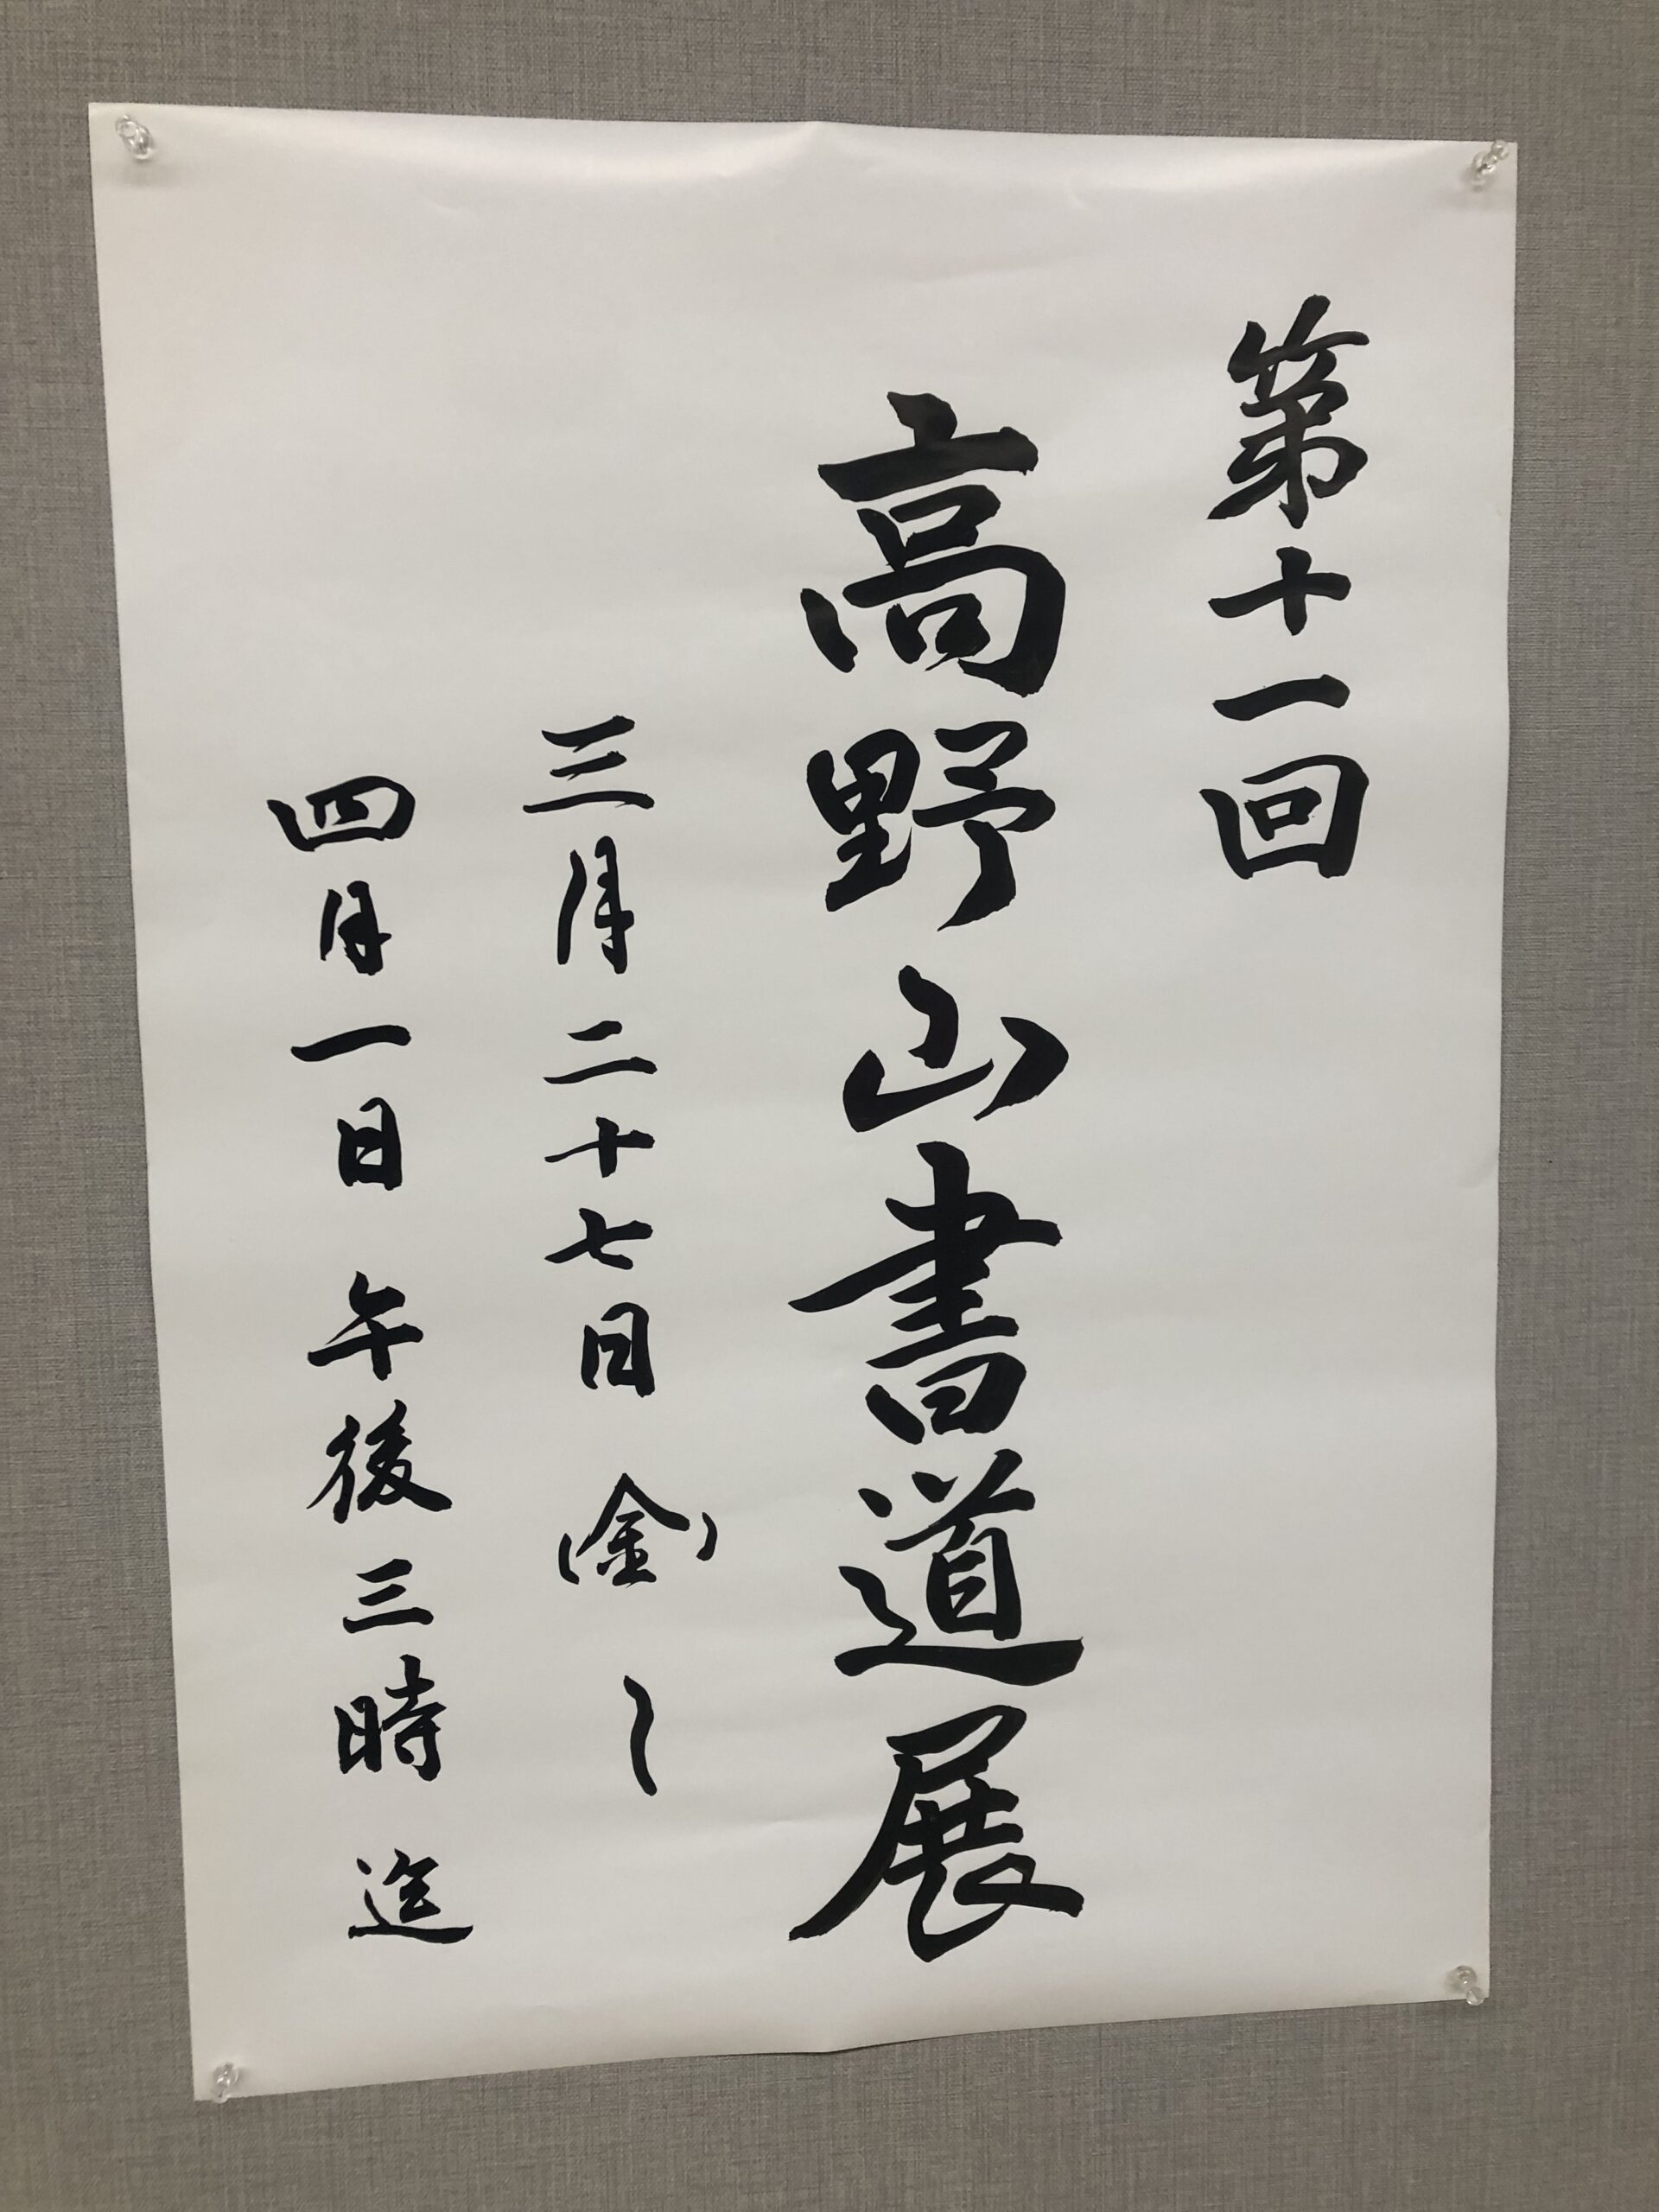 第十一回
高野山書道展
三月二十七日(金)〜
四月一日午後三時迄